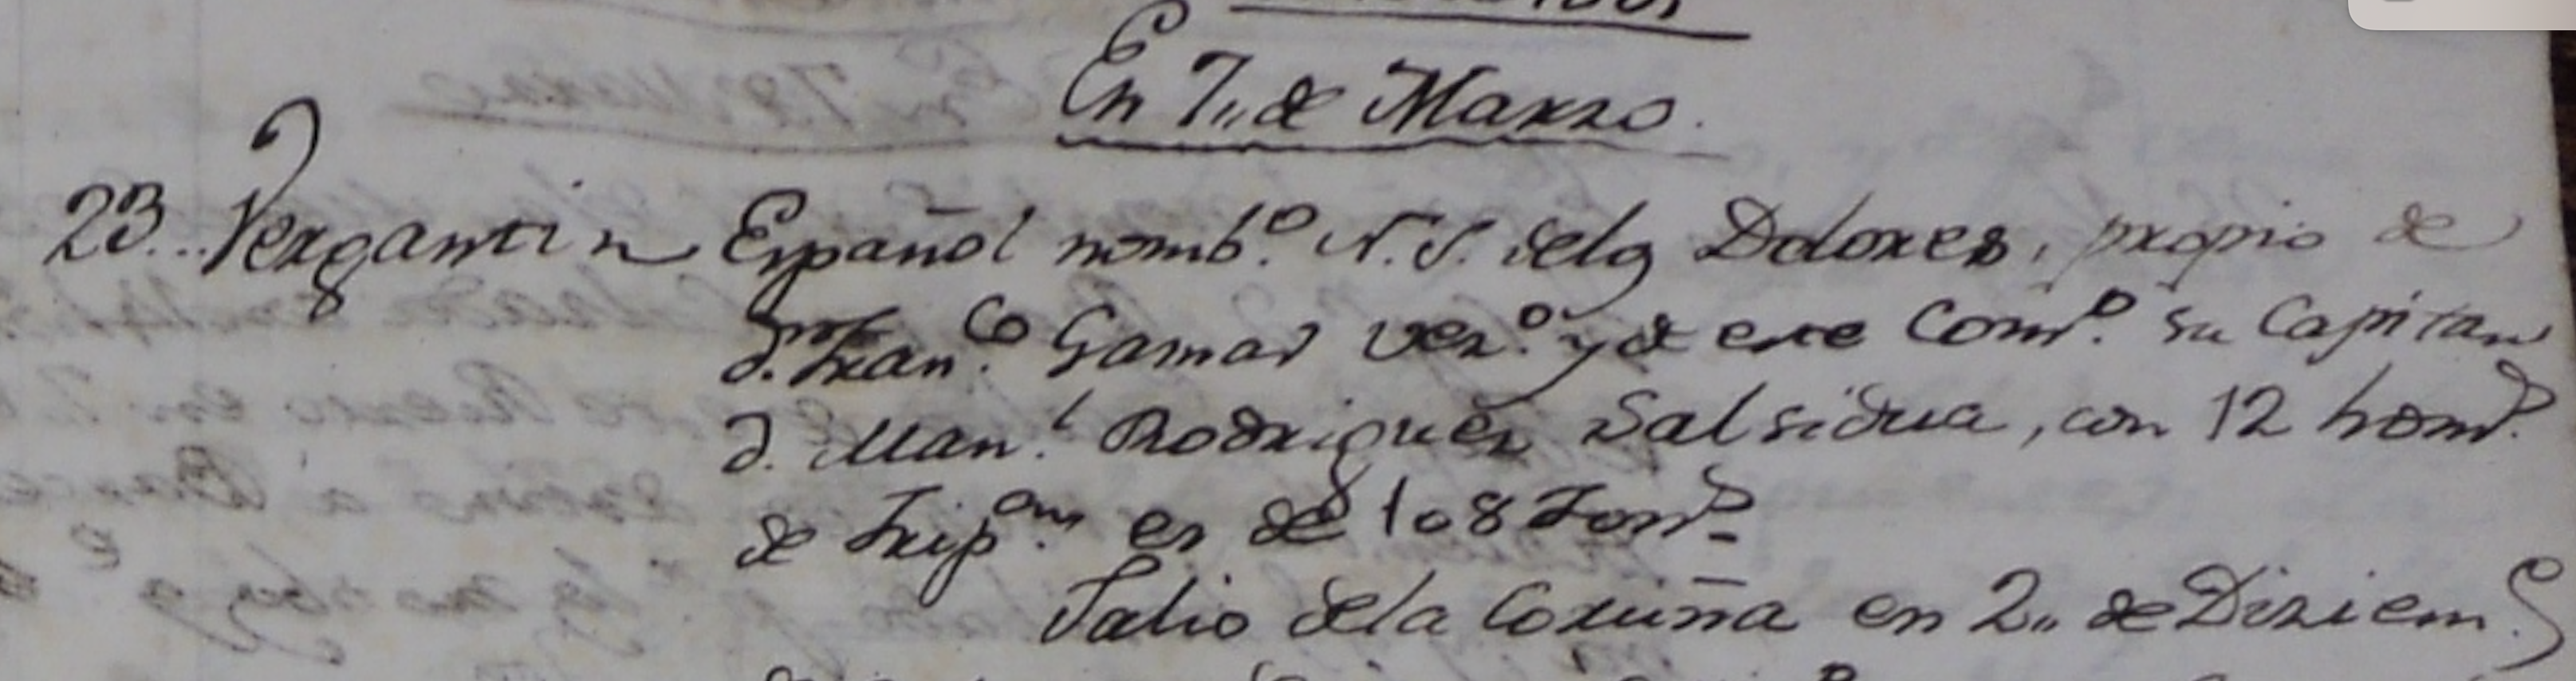 En 7,, de Marzo.
23.. Vergantin Español nomb.º N. S. de los Dolores, propio de
D.n Fran.co Gamas vez.º y de este Com.º su Capitan
D. Man.l Rodriguez Salsidua, con 12 hom.s
de Trip.on es de 108 Ton.s
Salio de la Coruña en 2,, de Diziem.e